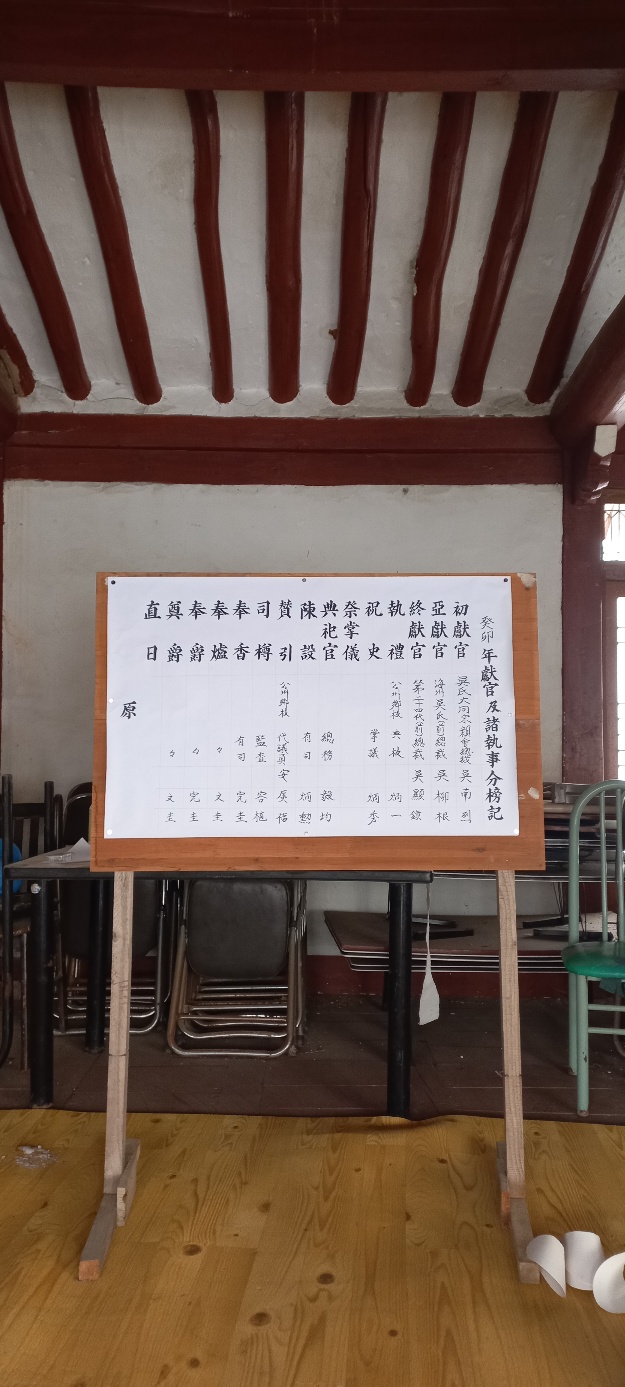 癸卯年獻官及諸執事分榜記
初獻官 吳氏大同宗親會總裁 吳 南 烈
亞獻官 海州吳氏(前)總裁 吳 柳 根
終獻官 第二十四代(前)總裁 吳 顯
執禮 公州鄕校 典校 炳 一
祝史 掌議 炳 秀
祭掌儀
典祀官 總務 毅 均
陳設 有司 炳 勳
贊引 公州鄕校 代議員 安
司樽 監査 容 植
奉香 有司 完 圭
奉爐 々 文 圭
奉爵 々 完 圭
奠爵 々 文 圭
直日
原